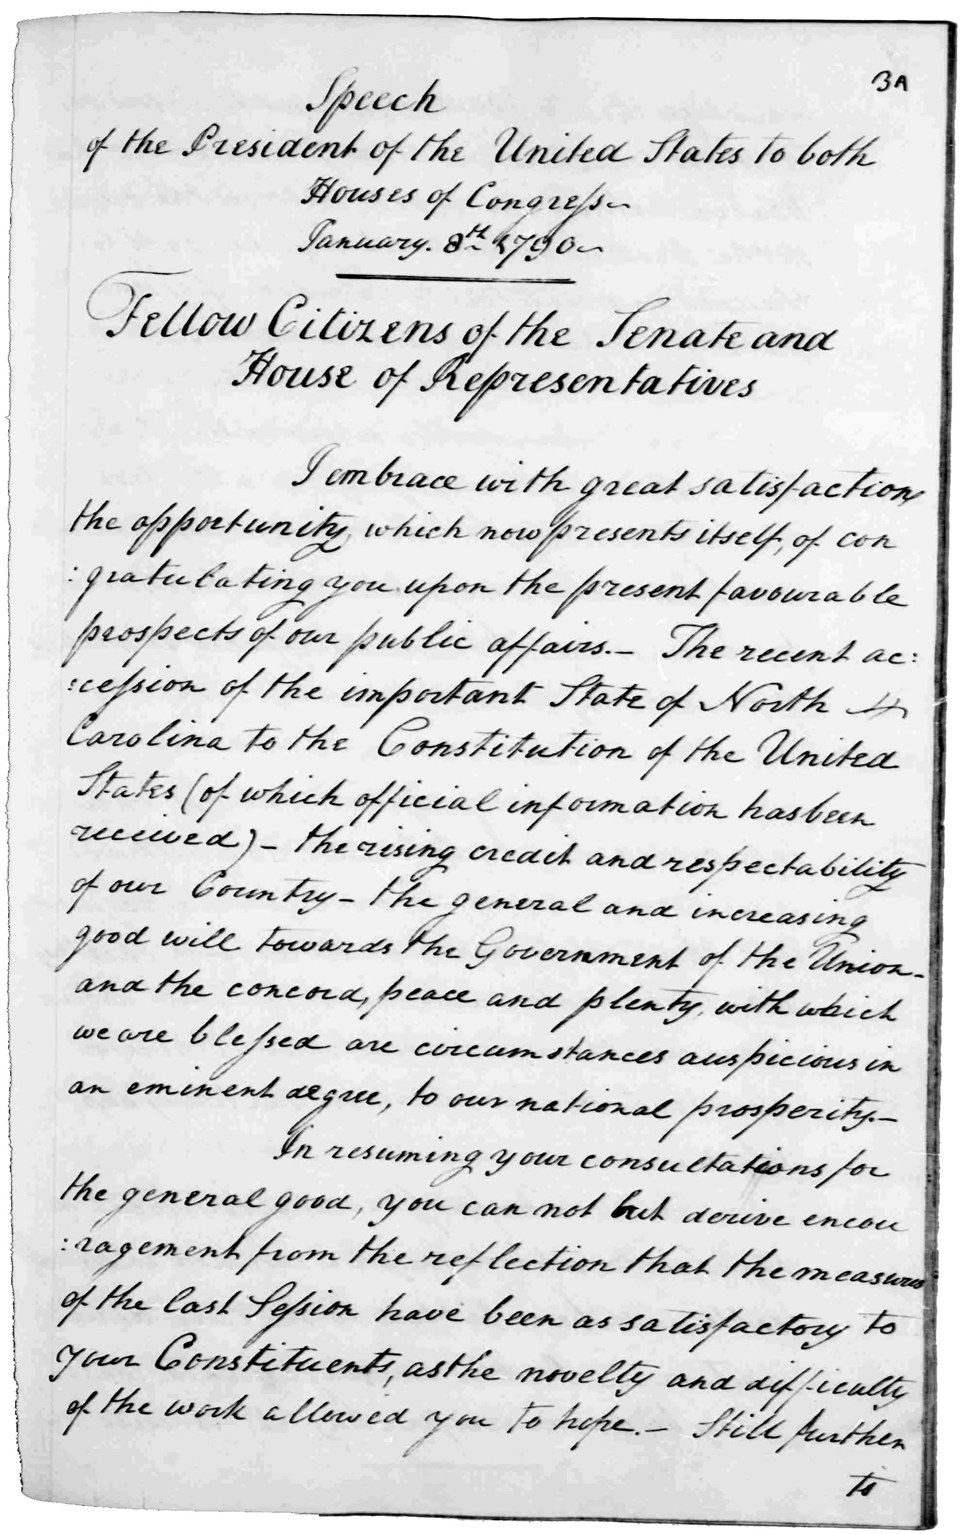 3A
Speech
of the President of the United States to both
Houses of Congress
January. 8th 1790
Fellow Citizens of the Senate and
House of Representatives
I embrace with great satisfaction
the opportunity, which now presents itself, of con
:gratulating you upon the present favourable
prospects of our public affairs.— The recent ac:
:cession of the important State of North
Carolina to the Constitution of the United
States (of which official information has been
received) – the rising credit and respectability
of our Country – the general and increasing
good will towards the Government of the Union –
and the concord, peace and plenty, with which
we are blessed are circumstances auspicious in
an eminent degree, to our national prosperity.—
In resuming your consultations for
the general good, you can not but derive encou
:ragement from the reflection that the measures
of the last Session have been as satisfactory to
your Constituents, as the novelty and difficulty
of the work allowed you to hope.— Still further
to